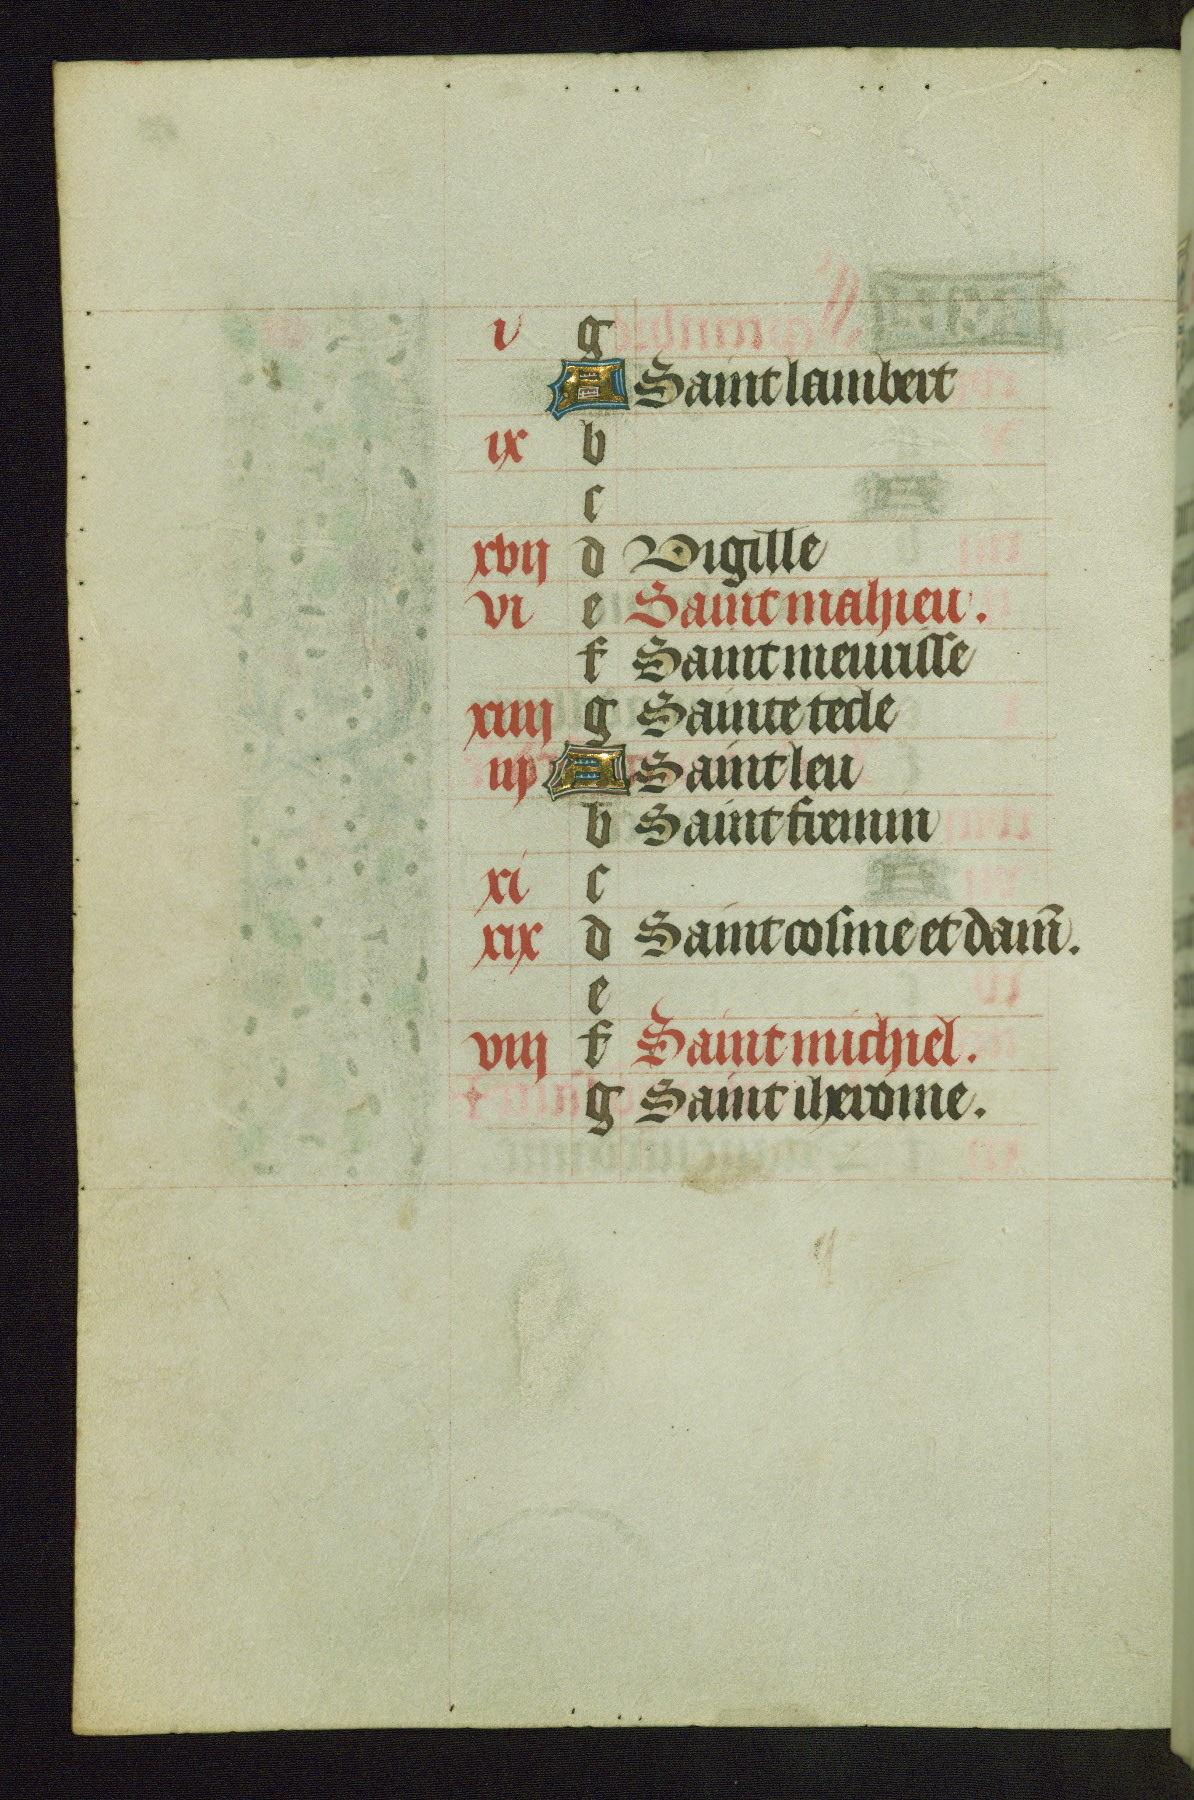 v g
A Saint lambert
ix b
c
xvij d Vigille
vi e Saint mahieu.
f Saint meurisse
xiiij g Sainte tecle
iij A Saint leu
b Saint firmin
xi c
xix d Saint cosme et dam̅.
e
viij f Saint michiel.
g Saint iherome.